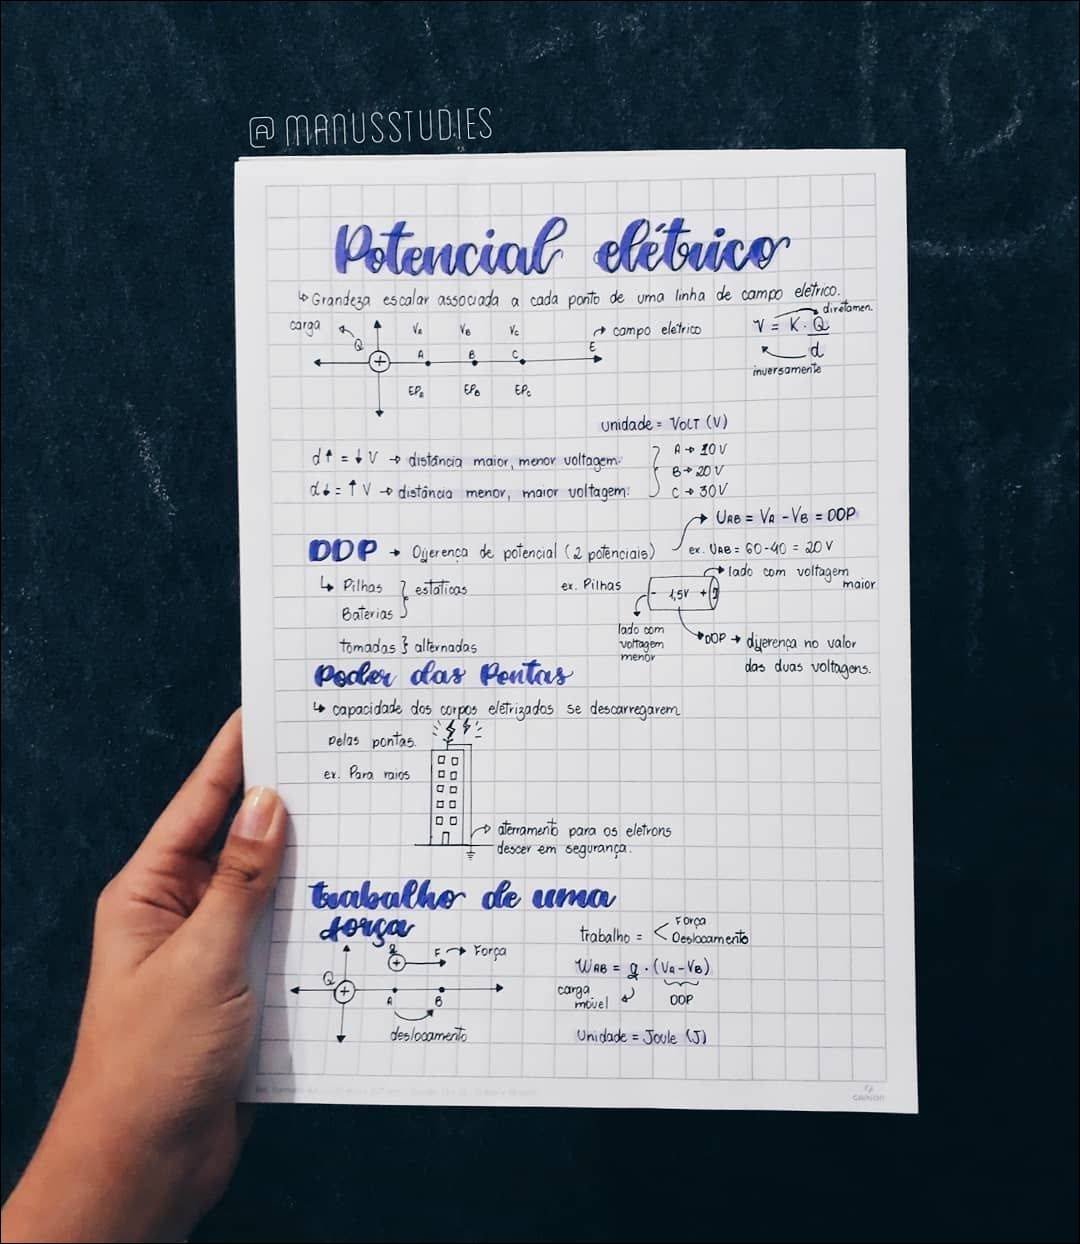 @MANUSSTUDIES
Potencial elétrico
↳ Grandeza escalar associada a cada ponto de uma linha de campo elétrico.
carga Q + VA VB VC
A B C E → campo elétrico
EPA EPB EPC
V = K . Q / d
diretamen.
inversamente
unidade = VOLT (V)
d↑ = ↓V → distância maior, menor voltagem.
d↓ = ↑V → distância menor, maior voltagem.
A → 10V
B → 20V
C → 30V
DDP → Diferença de potencial (2 potenciais)
UAB = VA - VB = DDP
ex. UAB = 60-40 = 20V
↳ Pilhas
Baterias } estáticas
tomadas } alternadas
ex. Pilhas
- 1,5V +
lado com voltagem maior
lado com
voltagem
menor
DDP → diferença no valor
das duas voltagens.
Poder das Pontas
↳ capacidade dos corpos eletrizados se descarregarem
pelas pontas.
ex. Para raios
aterramento para os eletrons
descer em segurança.
trabalho de uma
força
Q + q + F → Força
A B
deslocamento
trabalho = < Força
Deslocamento
WAB = q . (VA - VB)
carga
móvel
DDP
Unidade = Joule (J)
CANSON